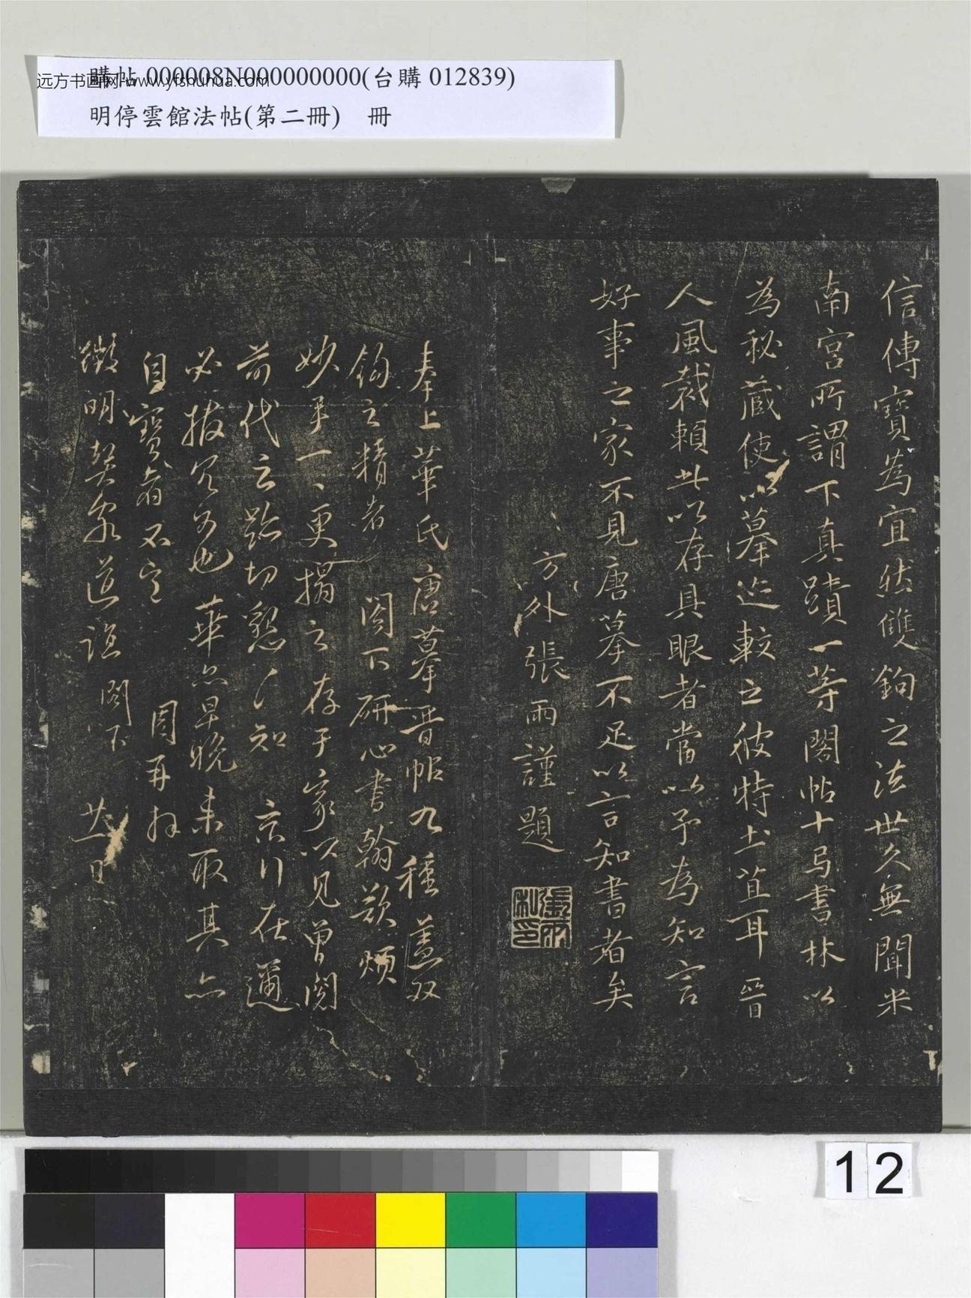 購帖 000008N000000000(台購 012839)
远方书画网 www.yfshuhua.com
明停雲館法帖(第二冊) 冊
信傳寶為宜然雙鉤之法世久無聞米
南宮所謂下真蹟一等閣帖十局書林以
為秘藏使以摹迹較之彼特土苴耳晉
人風裁賴此以存具眼者當以予為知言
好事之家不見唐摹不足以言知書者矣
方外張雨謹題
張雨私印
奉上華氏唐摹晉帖九種蓋双
鉤之精者 閣下研心書翰欲煩
妙手一一更搨之存于家以見曾閱
前代之跡切懇切懇知 京行在邇
必撥冗為也華亦早晚來取其亦
自寶翁不宣 周再拜
徵明契家 閣下 廿一日
12